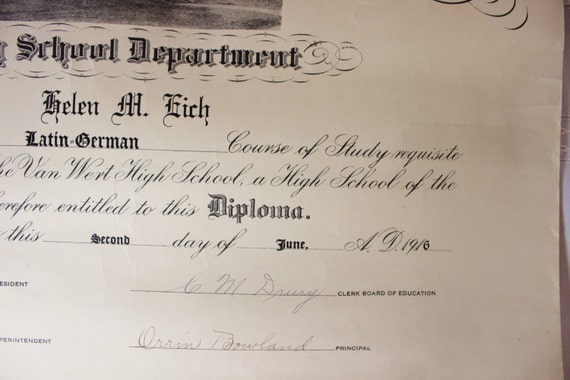 School Department
Helen M. Eich
Latin-German Course of Study requisite
he Van Wert High School, a High School of the
herefore entitled to this Diploma.
this Second day of June, A.D. 1916
ESIDENT C M Drury CLERK BOARD OF EDUCATION
PERINTENDENT Orrin Bowland PRINCIPAL